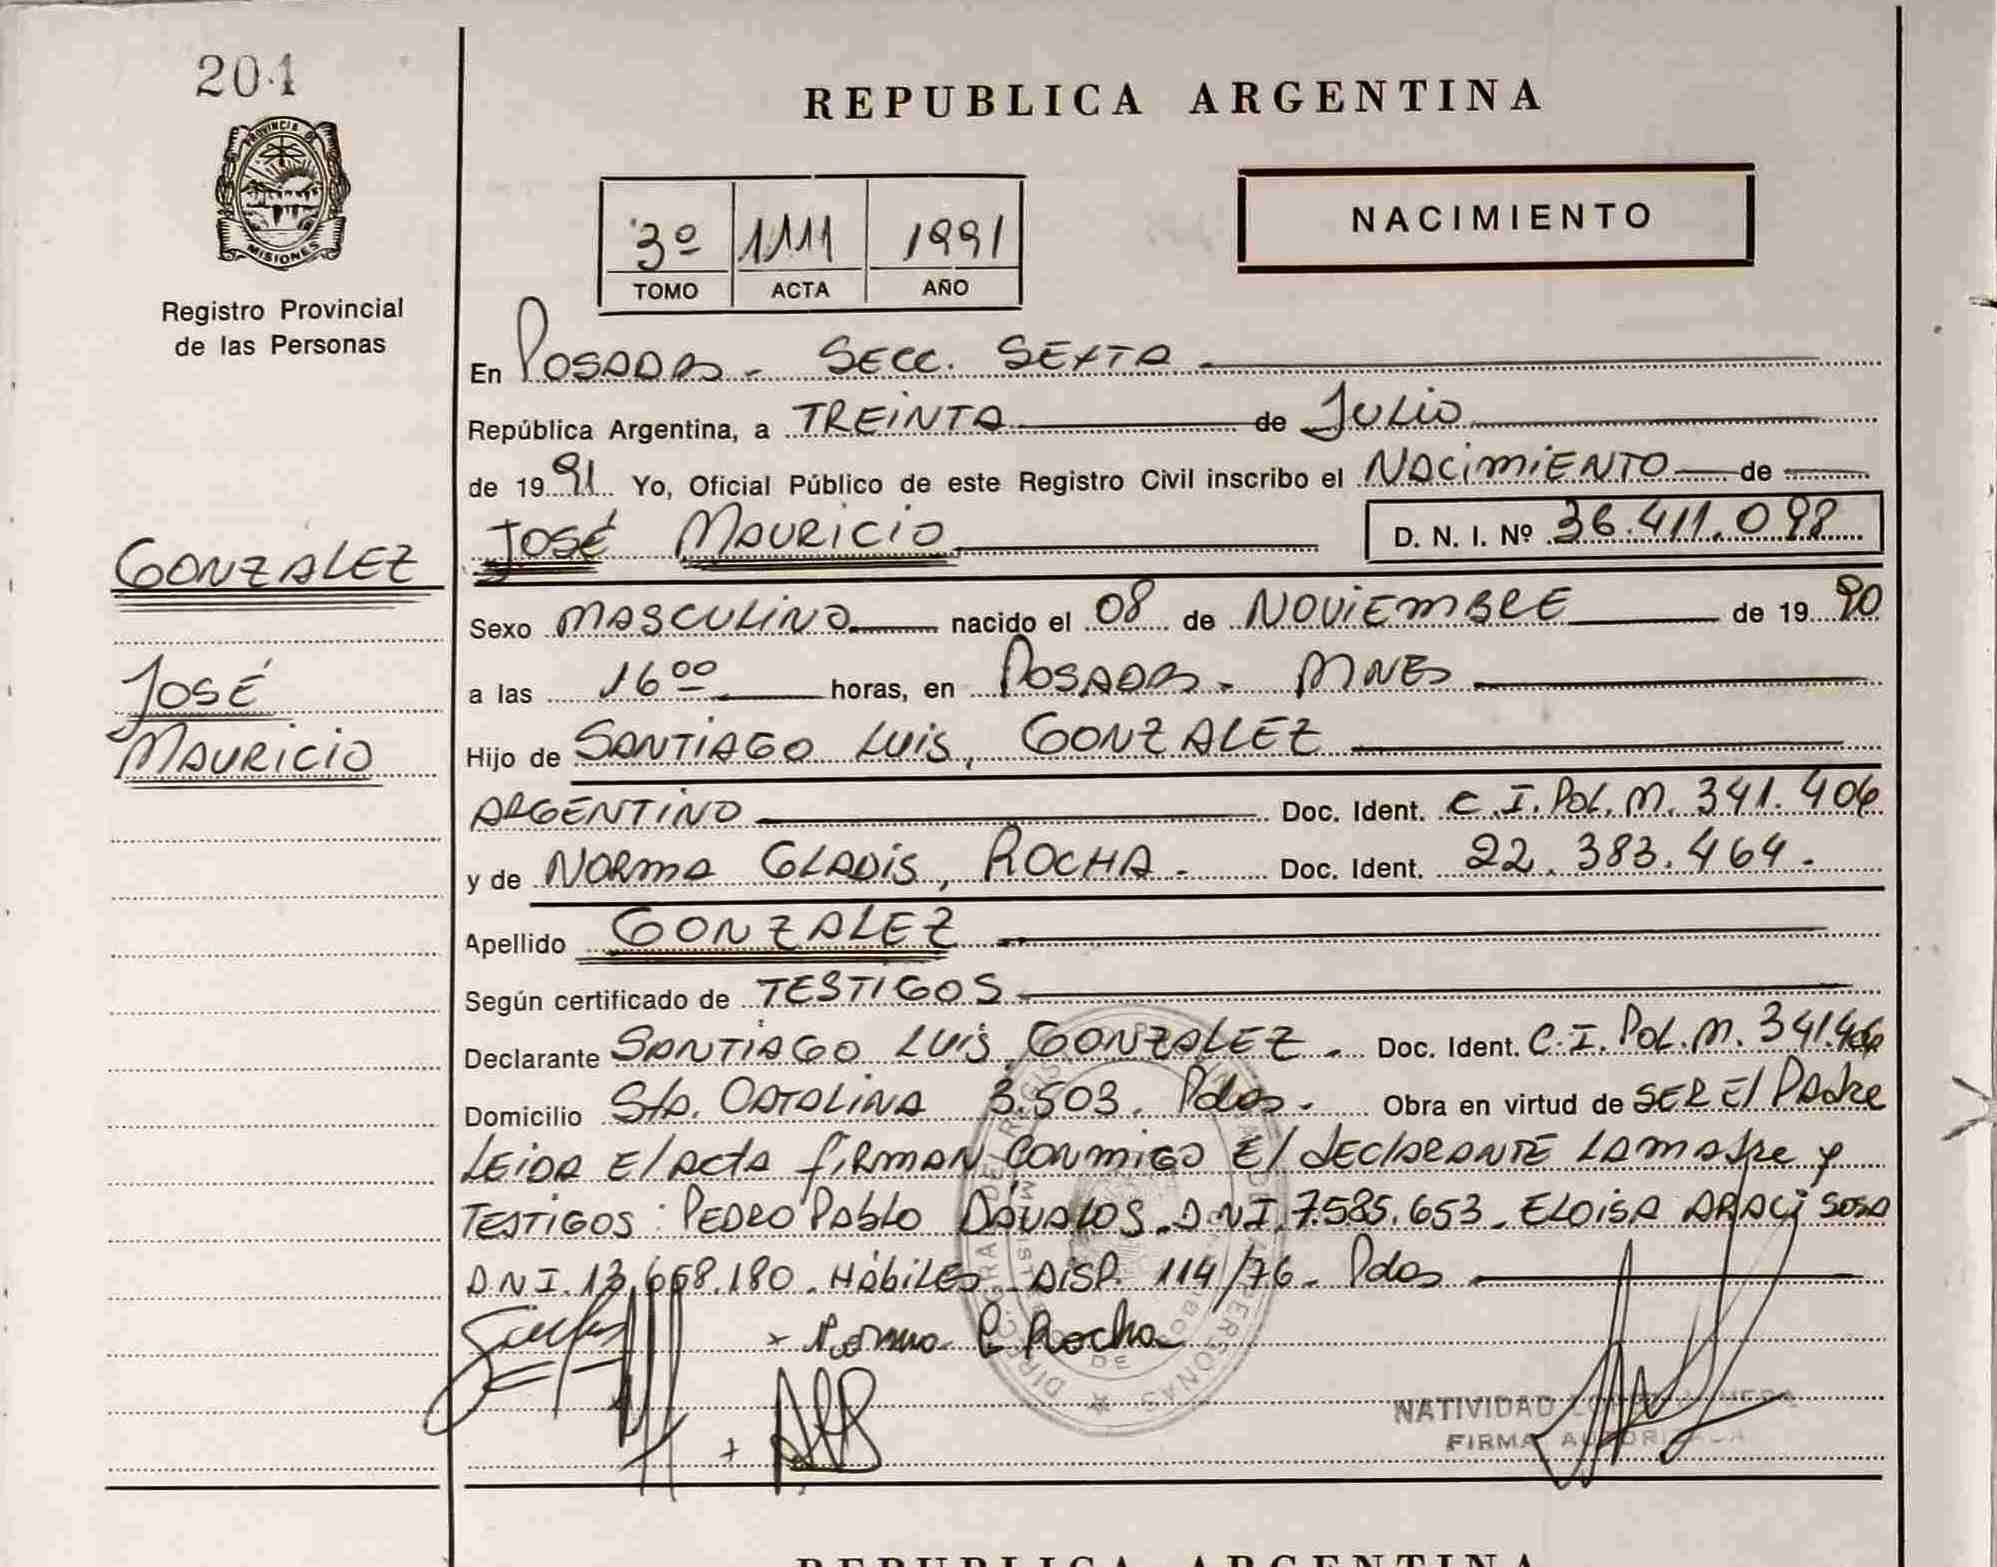 201
PROVINCIA DE
MISIONES
Registro Provincial
de las Personas
GONZALEZ
JOSÉ
MAURICIO
REPUBLICA ARGENTINA
3º 1111 1991
TOMO ACTA AÑO
NACIMIENTO
En POSADAS - SECC. SEXTA
República Argentina, a TREINTA de JULIO
de 1991 Yo, Oficial Público de este Registro Civil inscribo el NACIMIENTO de
JOSÉ MAURICIO D. N. I. Nº 36.411.098
Sexo MASCULINO nacido el 08 de NOVIEMBRE de 1990
a las 16 00 horas, en POSADAS - MNES
Hijo de SANTIAGO LUIS, GONZALEZ
ARGENTINO Doc. Ident. C.I. POL. M. 341.406
y de NORMA GLADIS, ROCHA - Doc. Ident. 22.383.464.
Apellido GONZALEZ
Según certificado de TESTIGOS
Declarante SANTIAGO LUIS, GONZALEZ - Doc. Ident. C.I. POL. M. 341.406
Domicilio Sta. CATALINA 3.503. Pdas. Obra en virtud de SER El PADRE
LEIDA El Acta FIRMAN CONMIGO El DECLARANTE LA MADRE y
TESTIGOS: PEDRO PABLO DÁVALOS. D.N.I. 7.585.653. ELOISA ARACI SOSA
D.N.I. 13.668.180. HÁBILES DISP. 114/76. Pdas
x Norma G Rocha
NATIVIDAD
FIRMA AUTORIZADA
REPUBLICA ARGENTINA